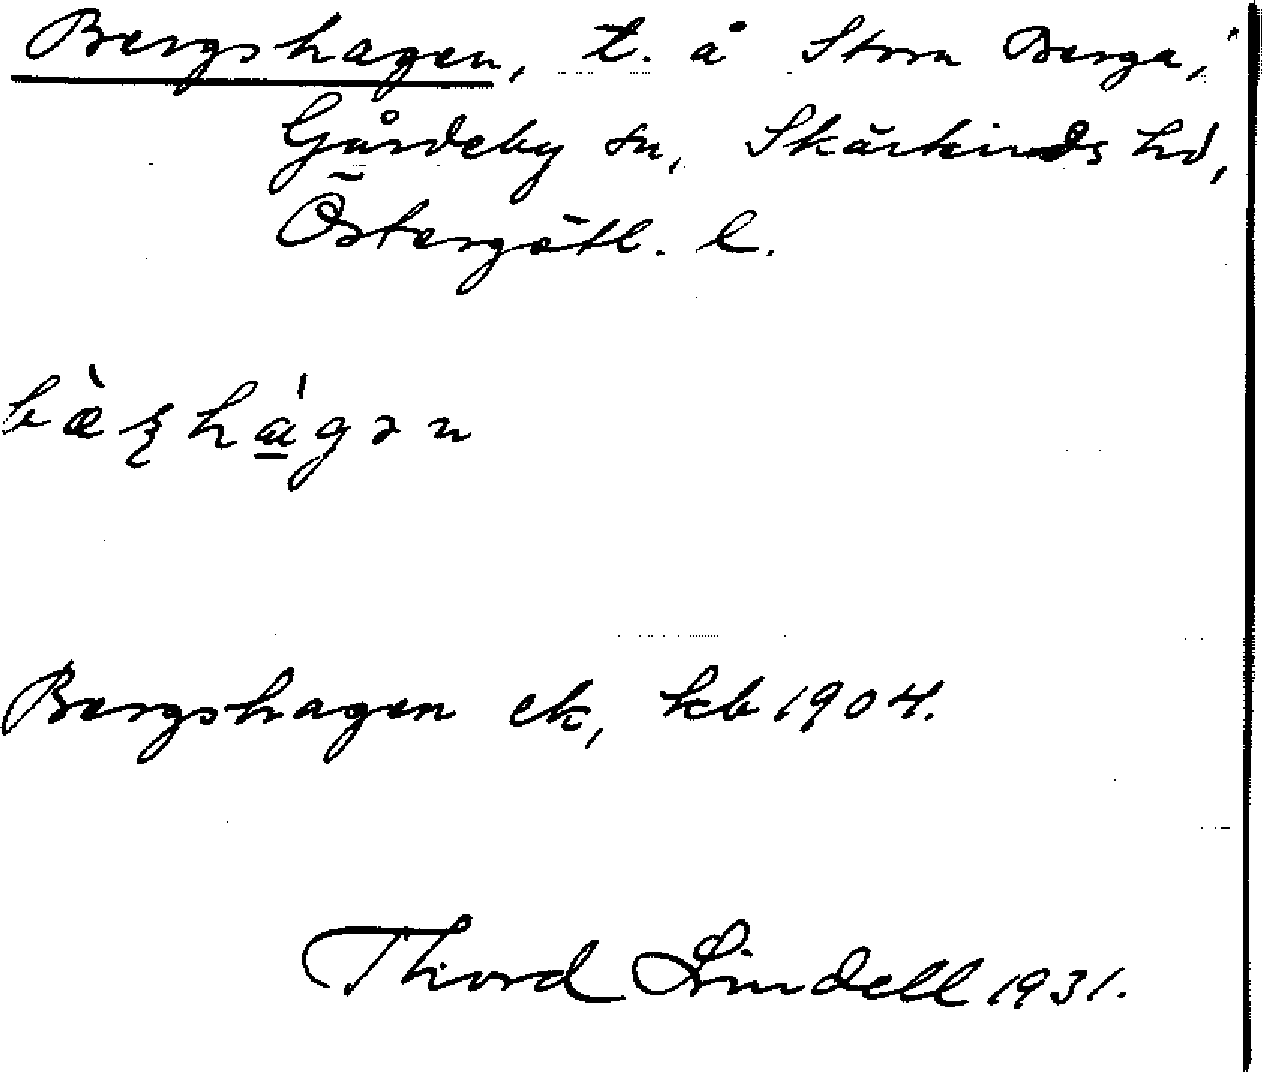 Bergshagen, t. å Stora Berga, i
Gårdeby sn, Skärkinds hd,
Östergötl. l.
bæ̀ʂhágən
Bergshagen ek, kb 1904.
Thord Lindell 1931.